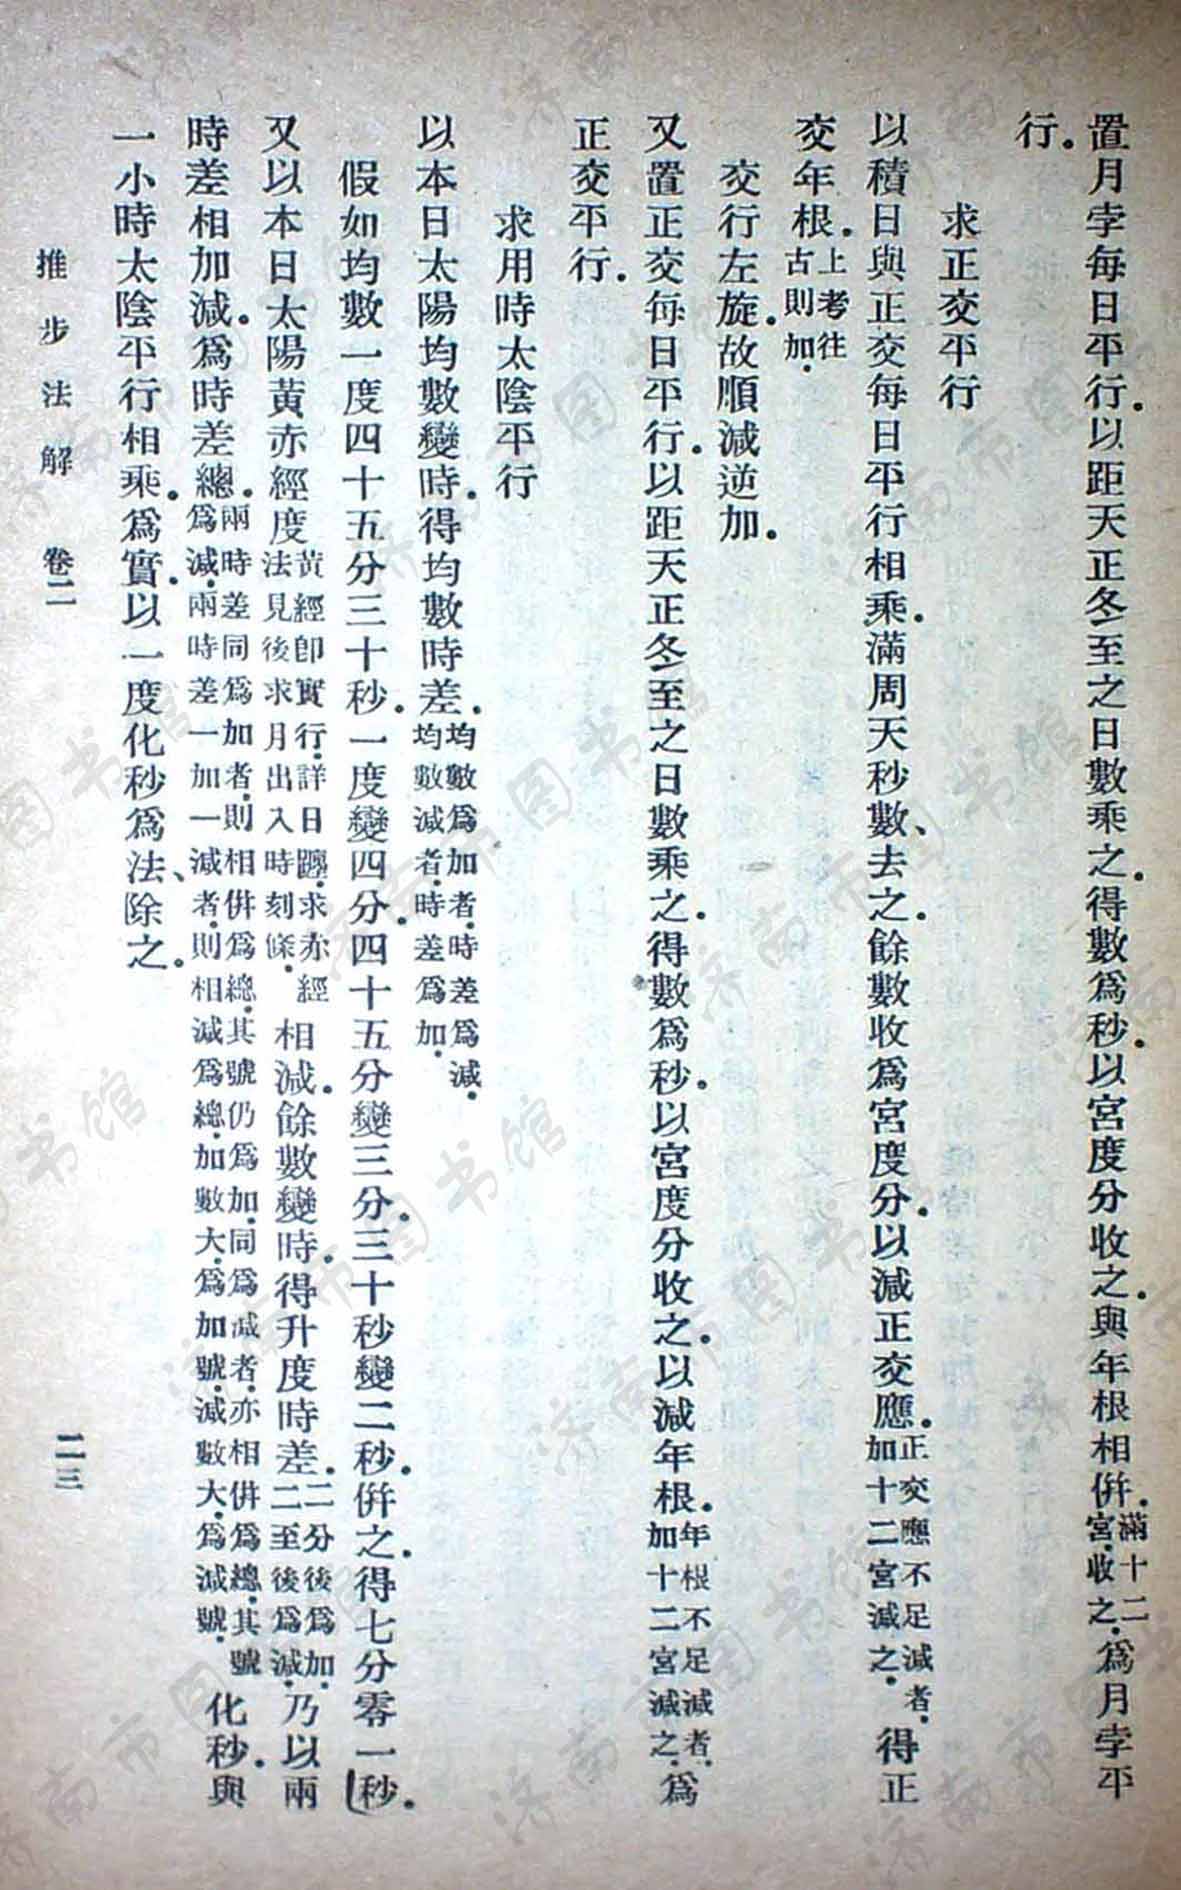 置月孛每日平行。以距天正冬至之日數乘之。得數爲秒。以宮度分收之。與年根相併。滿十二宮收之。爲月孛平
行。
求正交平行
以積日與正交每日平行相乘。滿周天秒數、去之。餘數收爲宮度分。以減正交應。正交應不足減者。加十二宮減之。得正
交年根。上考往古則加。
交行左旋。故順減逆加。
又置正交每日平行。以距天正冬至之日數乘之。得數爲秒。以宮度分收之。以減年根。年根不足減者。加十二宮減之。爲
正交平行。
求用時太陰平行
以本日太陽均數變時。得均數時差。均數爲加者。時差爲減。均數減者。時差爲加。
假如均數一度四十五分三十秒。一度變四分。四十五分變三分。三十秒變二秒。併之。得七分零一秒。
又以本日太陽黃赤經度黃經卽實行。詳日躔。求赤經法見後求月出入時刻條。相減。餘數變時。得升度時差。二分後爲加。二至後爲減。乃以兩
時差相加減。爲時差總。兩時差同爲加者。則相併爲總。其號仍爲加。同爲減者。亦相併爲總。其號爲減。兩時差一加一減者。則相減爲總。加數大。爲加號。減數大。爲減號。化秒。與
一小時太陰平行相乘。爲實。以一度化秒爲法、除之。
推步法解　卷二
二三